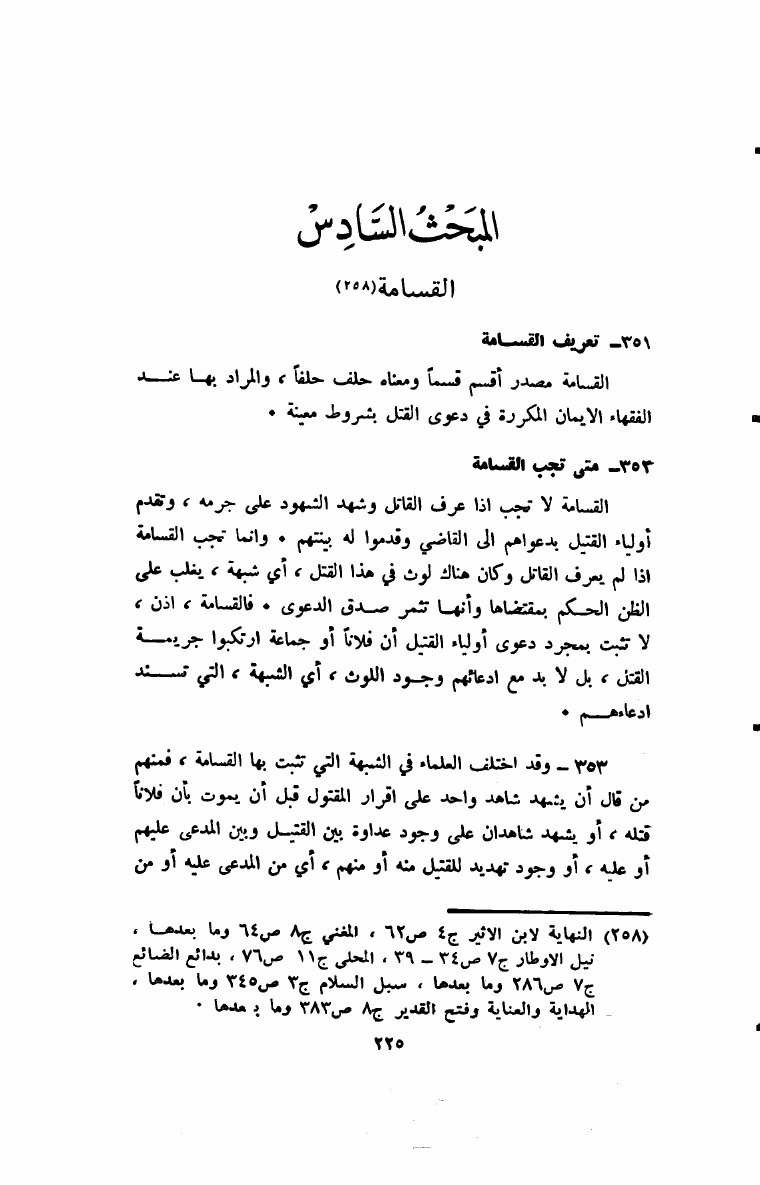 المبَحَثُ السَّادِسْ
القسامة(٢٥٨)
٣٥١ـ تعريف القســامة
القسامة مصدر أقسم قسماً ومعناه حلف حلفاً ، والمراد بهـا عنـــد
الفقهاء الايمان المكررة في دعوى القتل بشروط معينة ٠
٣٥٢ـ متى تجب القسامة
القسامة لا تجب اذا عرف القاتل وشهد الشهود على جرمه ، وتقدم
أولياء القتيل بدعواهم الى القاضي وقدموا له بينتهم ٠ وانما تجب القسامة
اذا لم يعرف القاتل وكان هناك لوث في هذا القتل ، أي شبهة ، يغلب على
الظن الحـكم بمقتضاها وأنهـا تثمر صـدق الدعوى ٠ فالقسامة ، اذن ،
لا تثبت بمجرد دعوى أولياء القتيل أن فلاناً أو جماعة ارتكبوا جريمــة
القتل ، بل لا بد مع ادعائهم وجـود اللوث ، أي الشبهة ، التي تســـند
ادعاءهــم ٠
٣٥٣ ـ وقد اختلف العلماء في الشبهة التي تثبت بها القسامة ، فمنهم
من قال أن يشهد شاهد واحد على اقرار المقتول قبل أن يموت بأن فلاناً
قتله ، أو يشهد شاهدان على وجود عداوة بين القتيـل وبين المدعى عليهم
أو عليه ، أو وجود تهديد للقتيل منه أو منهم ، أي من المدعى عليه أو من
(٢٥٨) النهاية لابن الاثير ج٤ ص٦٢ ، المغني ج٨ ص٦٤ وما بعدهـا ،
نيل الاوطار ج٧ ص٣٤ ـ ٣٩ ، المحلى ج١١ ص٧٦ ، بدائع الصنائع
ج٧ ص٢٨٦ وما بعدها ، سبل السلام ج٣ ص٣٤٥ وما بعدها ،
الهداية والعناية وفتح القدير ج٨ ص٣٨٣ وما بعدها ٠
٢٢٥